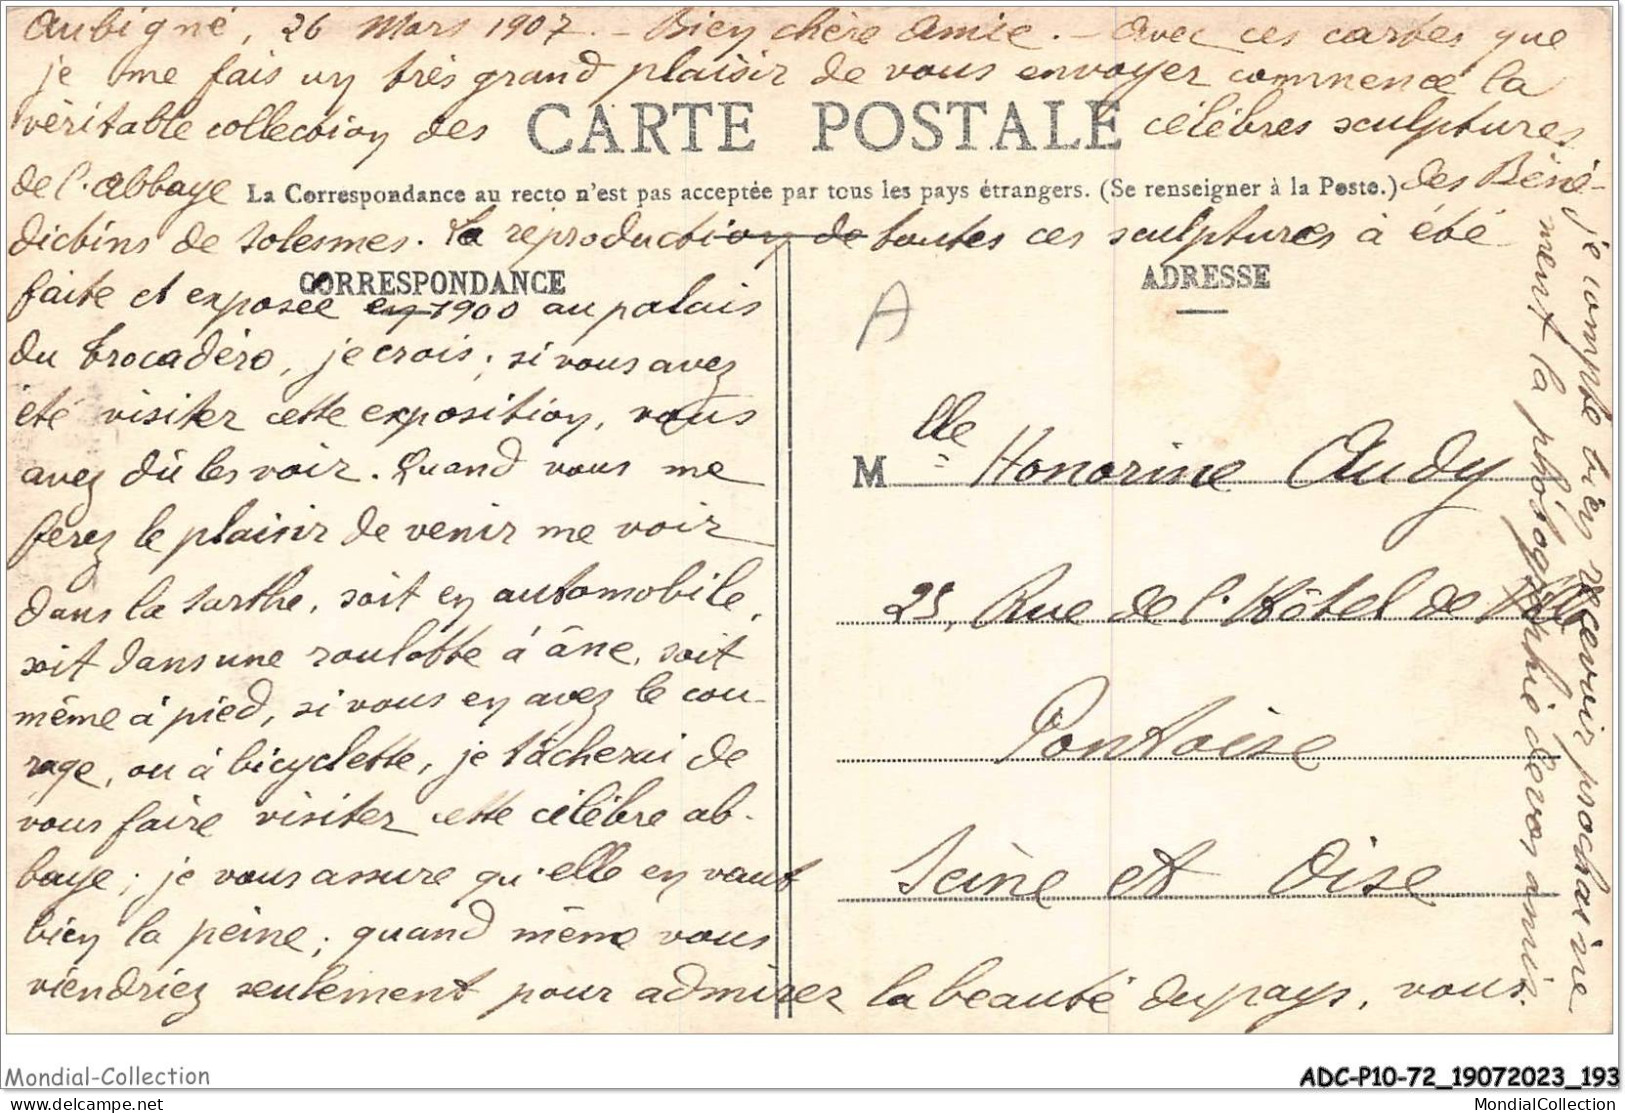 Aubigné, 26 Mars 1907. – Bien chère Amie. – Avec ces cartes que
je me fais un très grand plaisir de vous envoyer commence la
véritable collection des célèbres sculptures
CARTE POSTALE
de l'abbaye des Béné-
La Correspondance au recto n'est pas acceptée par tous les pays étrangers. (Se renseigner à la Poste.)
dictins de Solesmes. La reproduction de toutes ces sculptures à été
CORRESPONDANCE
faite et exposée en 1900 au palais
du Trocadéro, je crois; si vous avez
été visiter cette exposition, vous
avez dû les voir. Quand vous me
ferez le plaisir de venir me voir
dans la Sarthe, soit en automobile,
soit dans une roulotte à âne, soit
même à pied, si vous en avez le cou-
rage, ou à bicyclette, je tâcherai de
vous faire visiter cette célèbre ab-
baye; je vous assure qu'elle en vaut
bien la peine; quand même vous
viendriez seulement pour admirer la beauté du pays, vous.
ADRESSE
A
Mlle Honorine Audy
25, Rue de l'Hôtel de Ville
Pontoise
Seine et Oise
je compte bien recevoir prochaine
ment la photographie de vos amis.
Mondial-Collection
ADC-P10-72_19072023_193
www.delcampe.net
MondialCollection